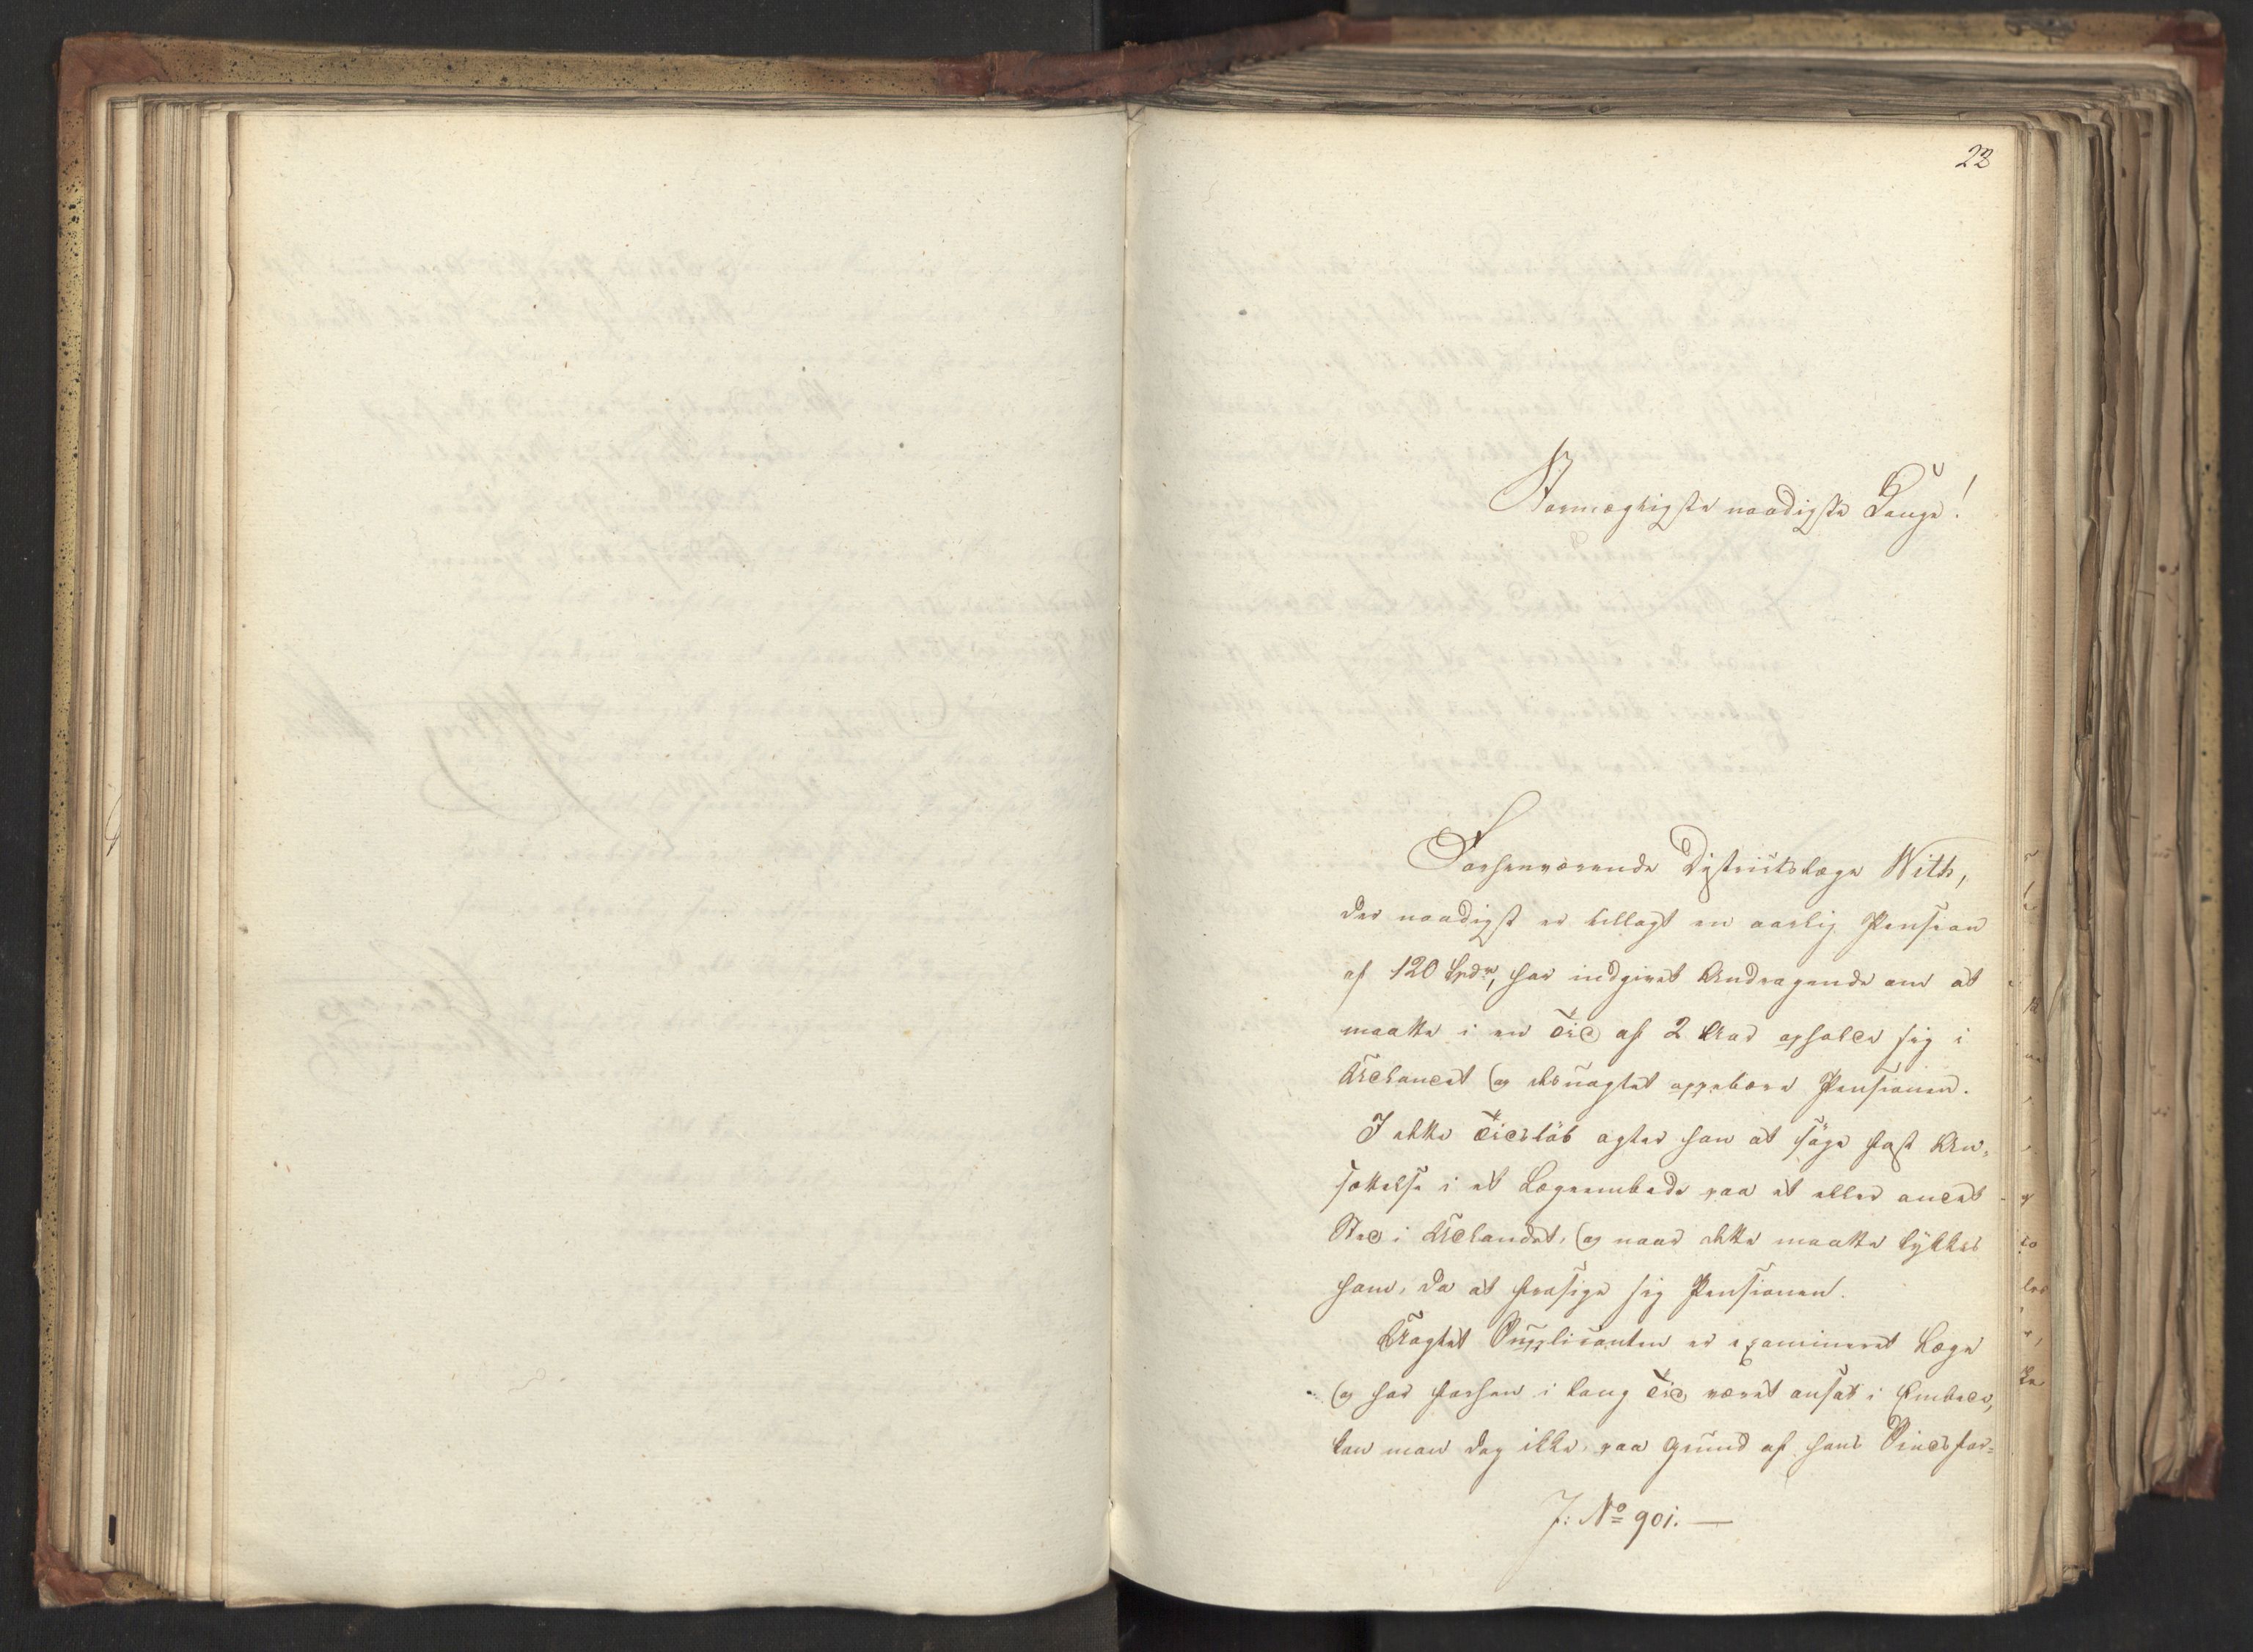 28
Stormægtigste naadigste Konge!
Forhenværende Districtslæge With,
der naadigst er tillagt en aarlig Pension
af 120 Spdr, har indgivet Andragende om at
maatte i en Tid af 2 Aar opholde sig i
Udlandet og desuagtet oppebære Pensionen.
I dette Tidsløb agter han at søge fast An-
sættelse i et Lægeembede paa et eller andet
Sted i Udlandet, og naar dette maatte lykkes
ham, da at frasige sig Pensionen.
Uagtet Supplicanten er examineret Læge
og har forhen i lang Tid været ansat i Embede,
kan man dog ikke, paa Grund af hans Sindsfor-
J: No 901. —